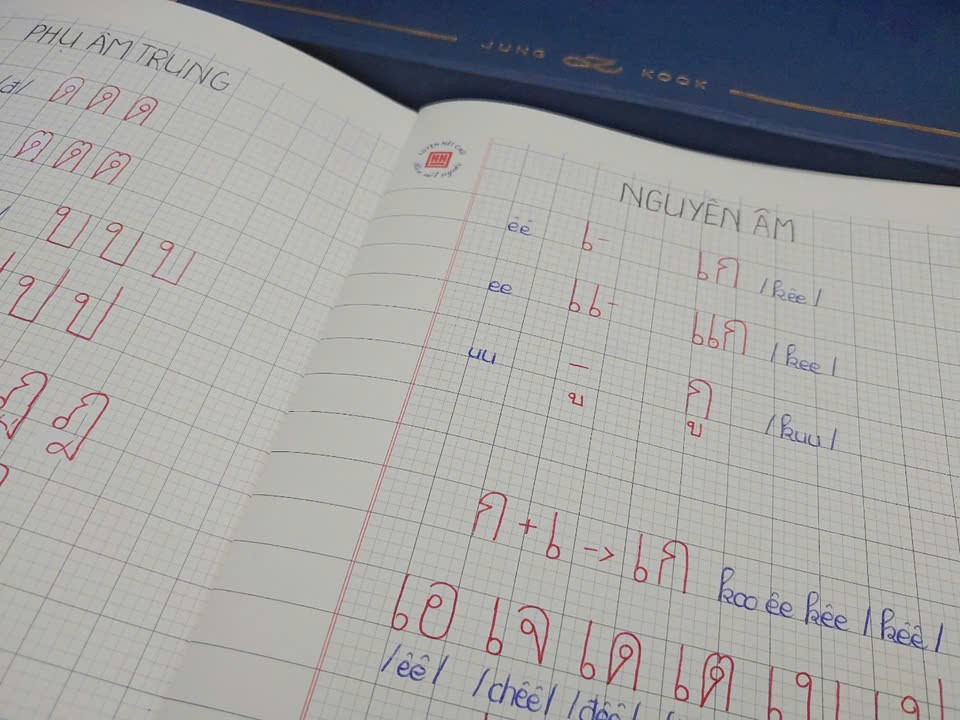 JUNG KOOK
PHỤ ÂM TRUNG
/đ/ ด ด ด
ต ต ต
บ บ บ
ป ป
ฎ ฎ
NGUYÊN ÂM
êê เ- เก /kêê/
ee แ- แก /kee/
uu -ู กู /kuu/
ก + เ -> เก koo êê kêê /kêê/
เอ เจ เด เต เ
/êê/ /chêê/ /đêê/